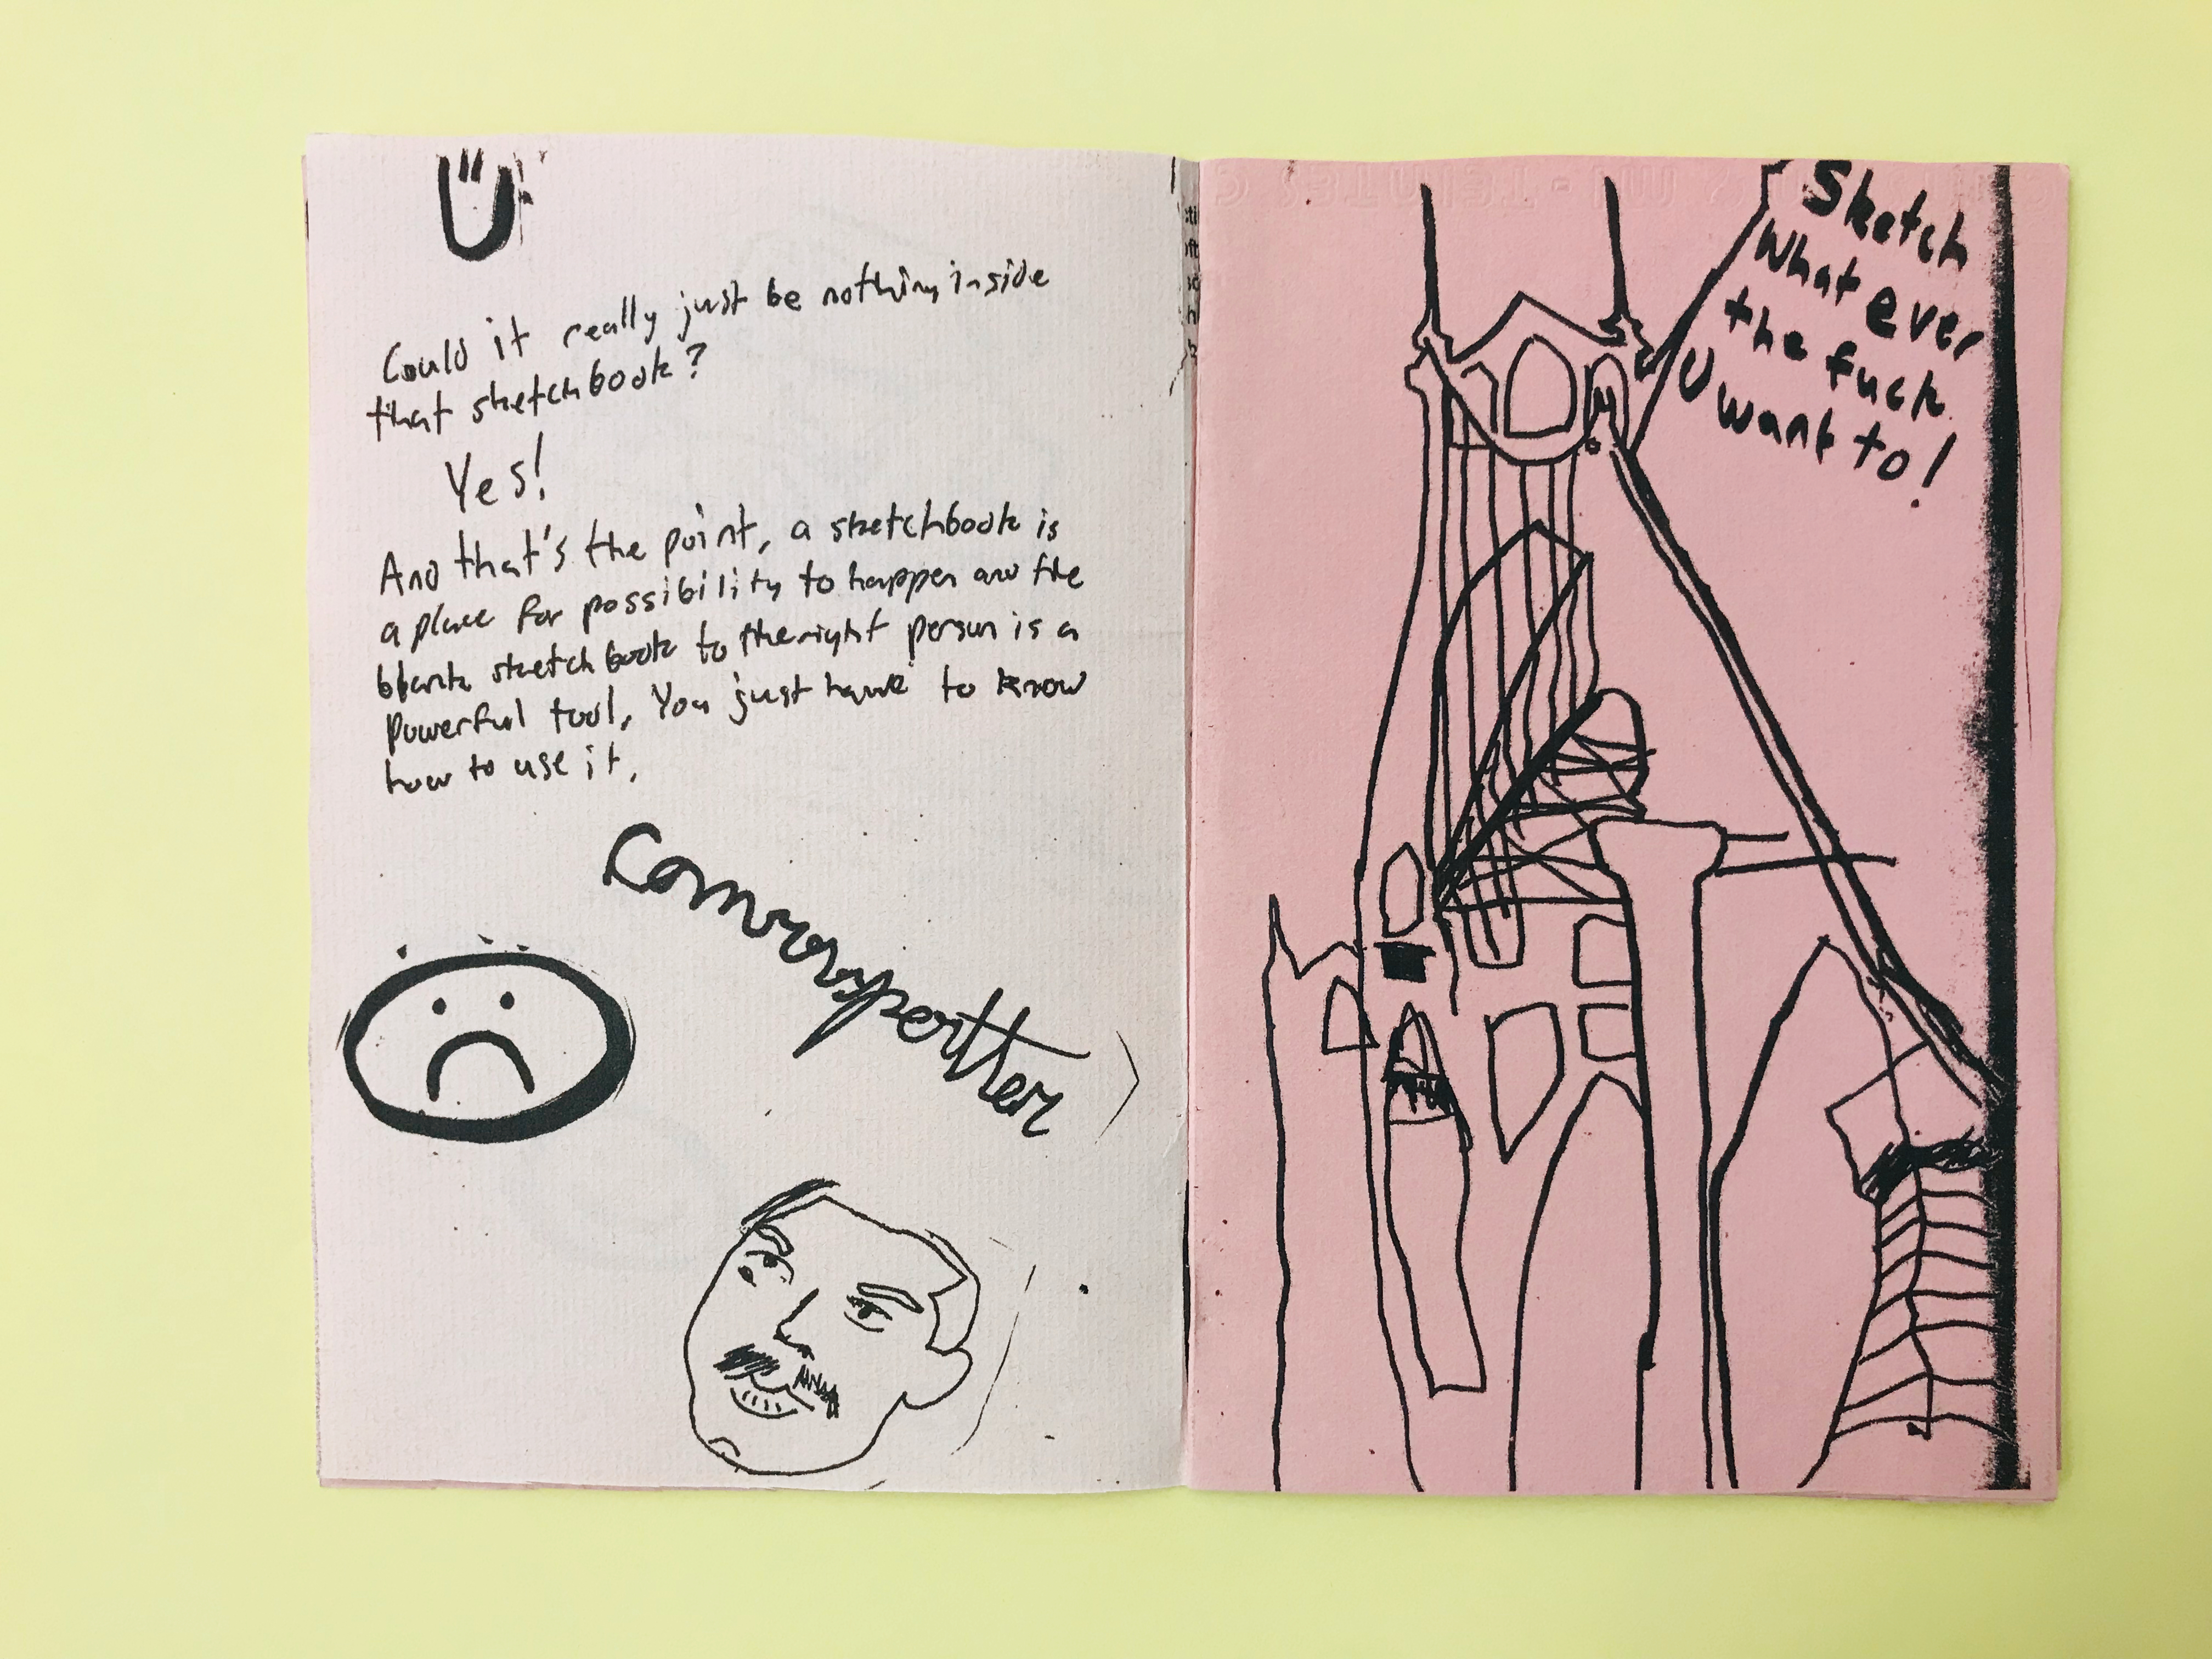 Could it really just be nothing inside
that sketchbook?
Yes!
And that's the point, a sketchbook is
a place for possibility to happen and the
blank sketchbook to the right person is a
powerful tool, You just have to know
how to use it,
Sketch
What ever
the fuck
U want to!